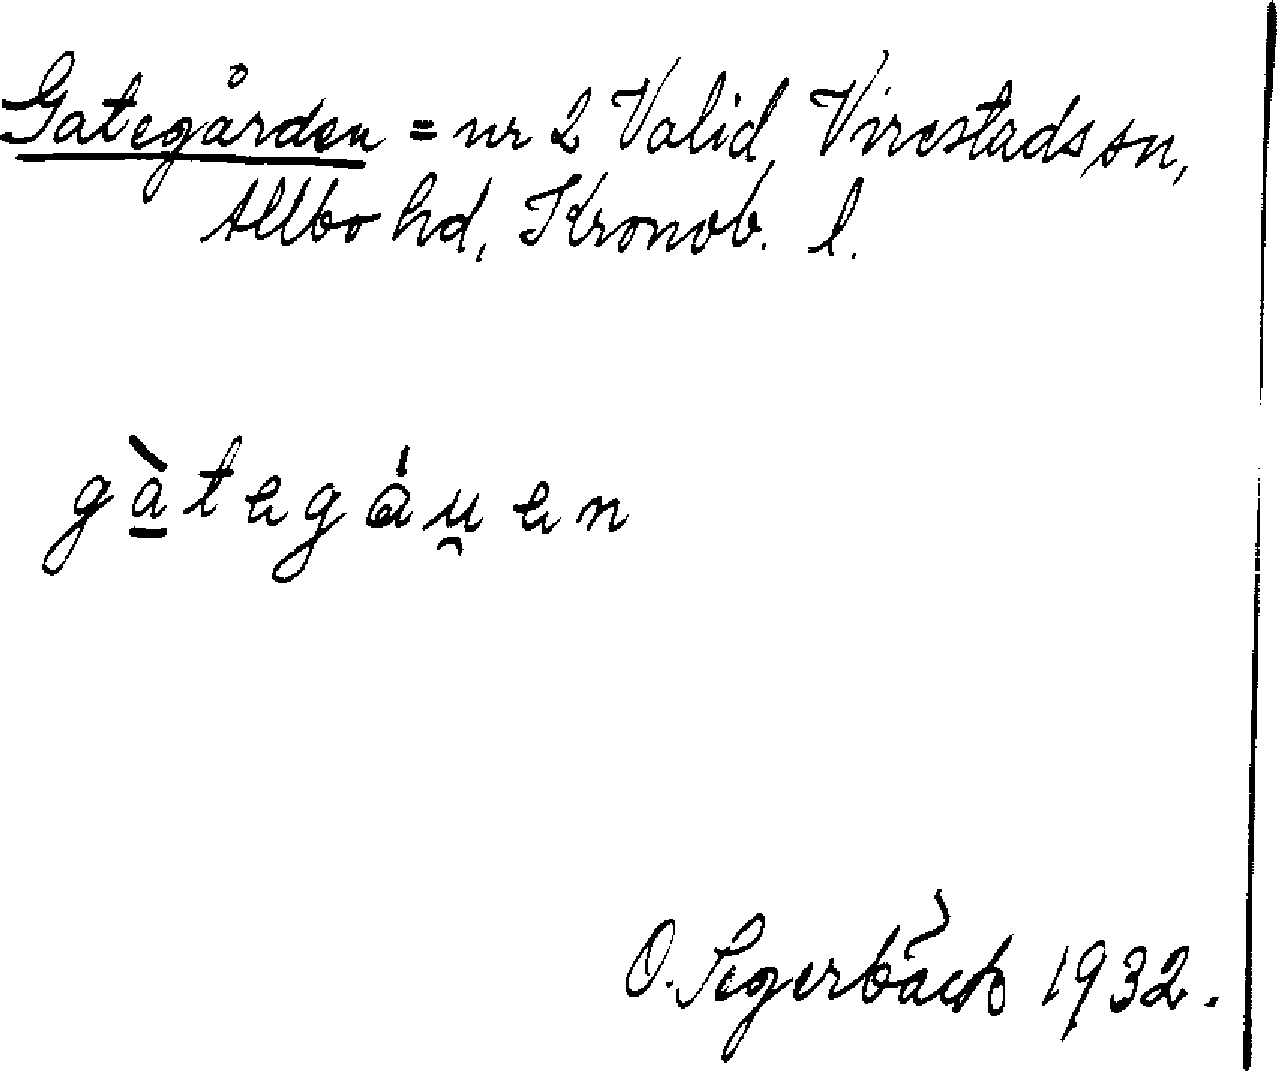 Gategården = nr 2 Valid, Virestads sn,
Allbo hd, Kronob. l.
gàtegåu̯en
O. Segerbäck 1932.